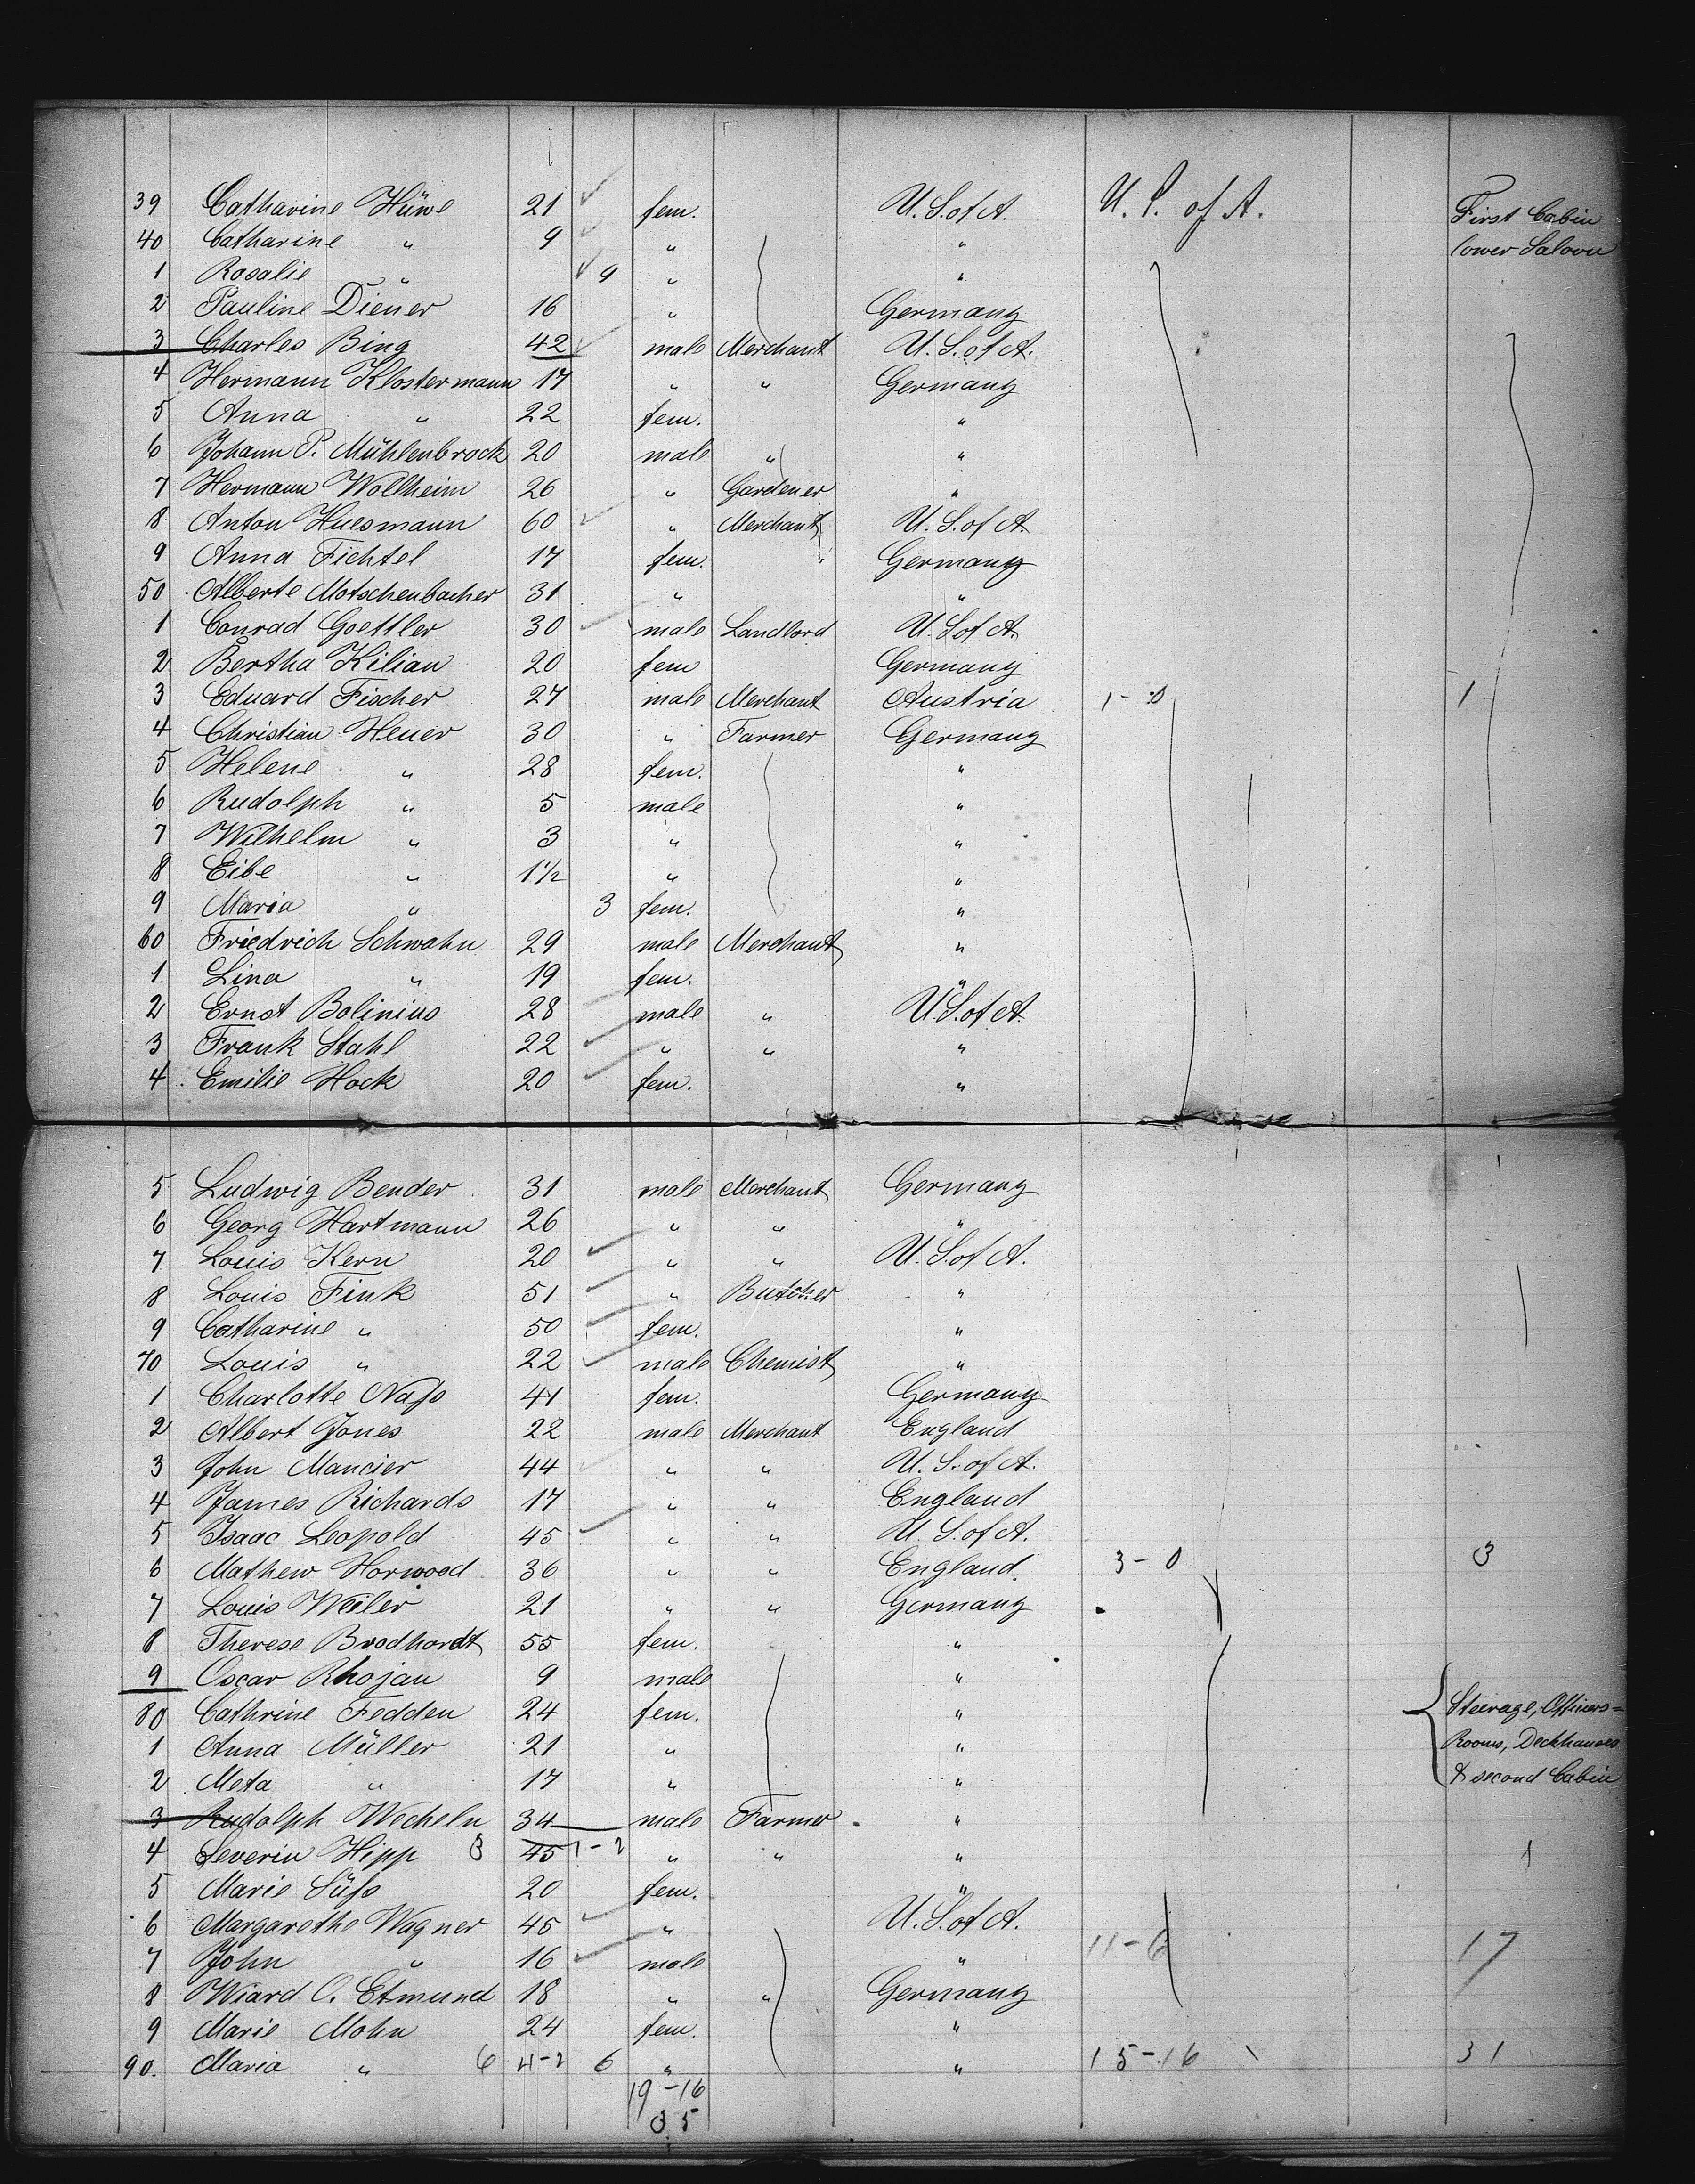 39 Catharine Hüwe 21 fem. U.S. of A. U. S. of A. First Cabin
40 Catharine " 9 " " lower Saloon
1 Rosalie " 9 " "
2 Pauline Diener 16 " Germany
3 Charles Bing 42 male Merchant U. S. of A.
4 Hermann Klostermann 17 " " Germany
5 Anna " 22 fem. "
6 Johann P. Mühlenbrock 20 male " "
7 Hermann Wollheim 26 " Gardener "
8 Anton Huesmann 60 " Merchant U. S. of A
9 Anna Fichtel 17 fem. Germany
50 Alberte Motschenbacher 31 " "
1 Conrad Goettler 30 male Landlord U. S. of A.
2 Bertha Kilian 20 fem Germany
3 Eduard Fischer 27 male Merchant Austria 1 - 0 1
4 Christian Heuer 30 " Farmer Germany
5 Helene " 28 fem. "
6 Rudolph " 5 male "
7 Wilhelm " 3 " "
8 Eibe " 1 1/2 " "
9 Maria " 3 fem. "
60 Friedrich Schwahn 29 male Merchant "
1 Lina " 19 fem. "
2 Ernst Bolinius 28 male " U. S. of A.
3 Frank Stahl 22 " " "
4 Emilie Hock 20 fem. "
5 Ludwig Bender 31 male Merchant Germany
6 Georg Hartmann 26 " " "
7 Louis Kern 20 " " U. S. of A.
8 Louis Fink 51 " Butcher "
9 Catharine " 50 fem. "
70 Louis " 22 male Chemist "
1 Charlotte Naſs 41 fem. Germany
2 Albert Jones 22 male Merchant England
3 John Mancier 44 " " U. S. of A.
4 James Richards 17 " " England
5 Isaac Leopold 45 " " U. S. of A.
6 Mathew Horwood 36 " " England 3 - 0 3
7 Louis Weiler 21 " " Germany
8 Therese Brodhordt 55 fem. "
9 Oscar Rhojan 9 male "
80 Cathrine Fedden 24 fem. " Steerage, Officers=
1 Anna Müller 21 " " Rooms, Deckhouses
2 Meta " 17 " " & second Cabin
3 Rudolph Wecheln 34 male Farmer "
4 Severin Hipp 3 45 1-2 " " " 1
5 Marie Süſs 20 fem. "
6 Margarethe Wagner 45 " U. S. of A.
7 John " 16 male " 11-6 17
8 Wiard O. Etmund 18 " " Germany
9 Marie Mohn 24 fem. "
90. Maria " 6 4-2 6 " " 15-16 31
19-16
35